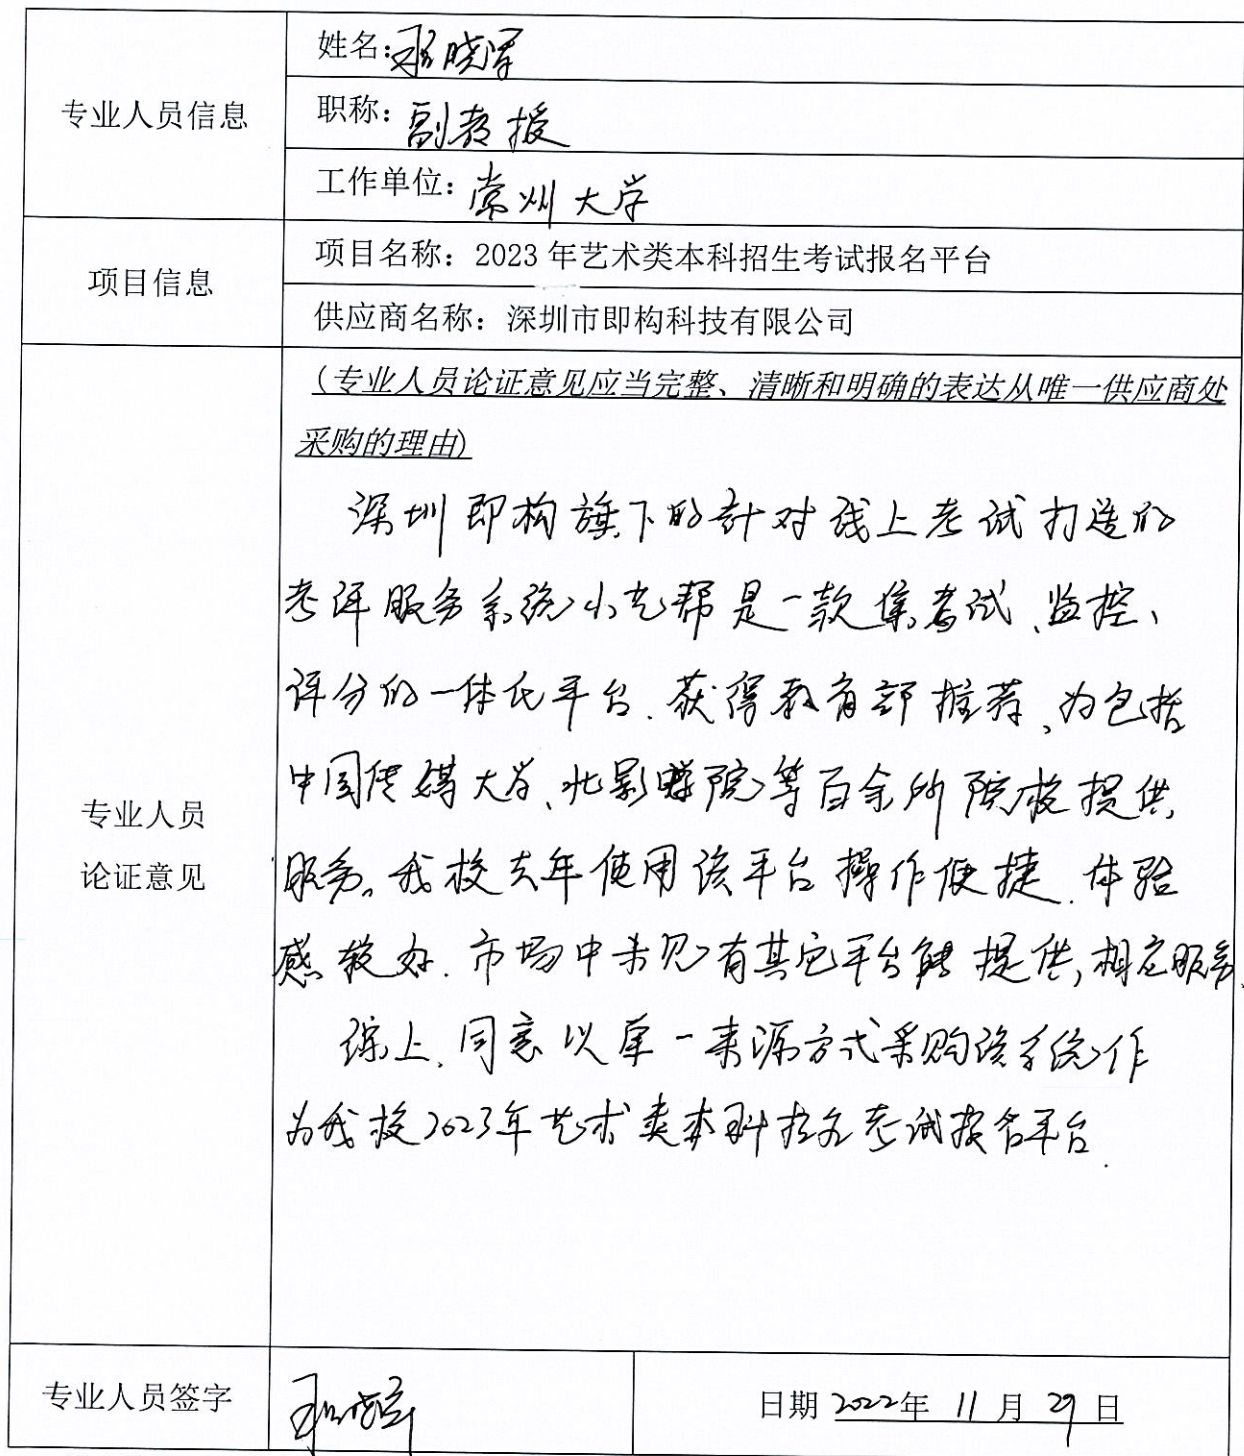 专业人员信息
姓名:晓军
职称:副教授
工作单位:常州大学
项目信息
项目名称:2023年艺术类本科招生考试报名平台
供应商名称:深圳市即构科技有限公司
专业人员
论证意见
(专业人员论证意见应当完整、清晰和明确的表达从唯一供应商处
采购的理由)
深圳即构旗下的针对线上考试打造的
考评服务系统小艺帮是一款集考试、监控、
评分的一体化平台.获得教育部推荐、为包括
中国传媒大学、北影院等百余所院校提供
服务。我校去年使用该平台操作便捷.体验
感较好.市场中未见有其它平台能提供相应服务.
综上.同意以单一来源方式采购该系统作
为我校2023年艺术类本科招生考试报名平台.
专业人员签字
日期 2022年 11 月 29 日